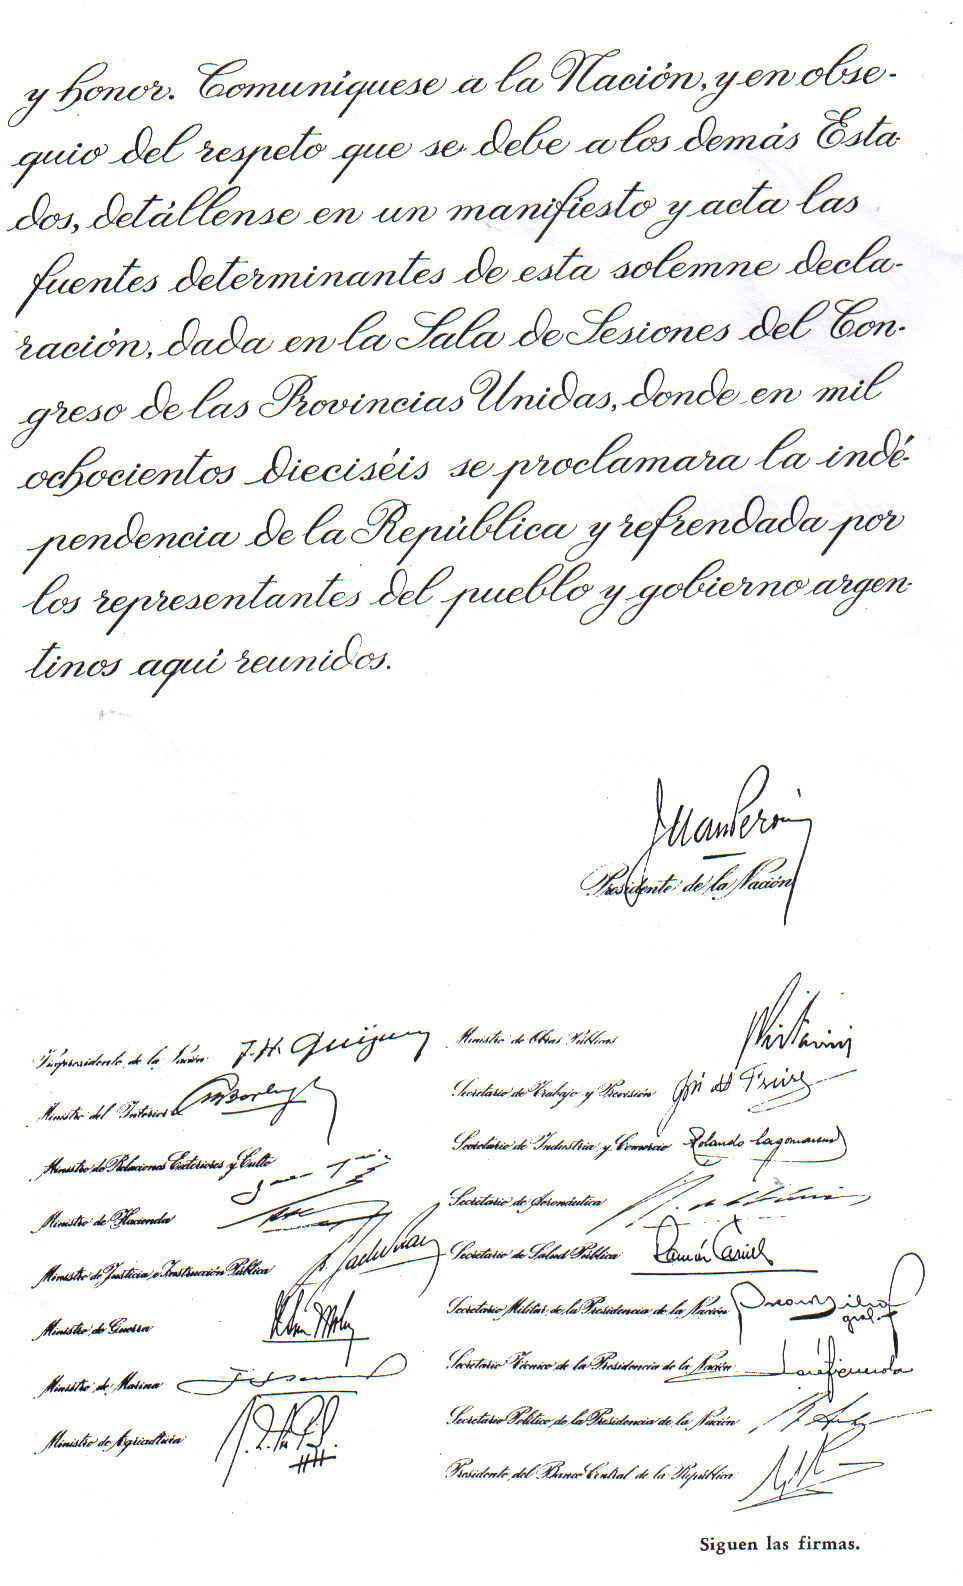 y honor. Comuníquese a la Nación, y en obse-
quio del respeto que se debe a los demás Esta-
dos, detállense en un manifiesto y acta las
fuentes determinantes de esta solemne decla-
ración, dada en la Sala de Sesiones del Con-
greso de las Provincias Unidas, donde en mil
ochocientos dieciséis se proclamara la indé-
pendencia de la República y refrendada por
los representantes del pueblo y gobierno argen-
tinos aquí reunidos.
Juan Perón
Presidente de la Nación
Vicepresidente de la Nación J. H. Quijano
Ministro del Interior
Ministro de Relaciones Exteriores y Culto
Ministro de Hacienda
Ministro de Justicia e Instrucción Pública
Ministro de Guerra
Ministro de Marina
Ministro de Agricultura
Ministro de Obras Públicas
Secretario de Trabajo y Previsión José M Freire
Secretario de Industria y Comercio Rolando Lagomarsino
Secretario de Aeronáutica
Secretario de Salud Pública Ramón Carrillo
Secretario Militar de la Presidencia de la Nación
Secretario Técnico de la Presidencia de la Nación José Figuerola
Secretario Político de la Presidencia de la Nación
Presidente del Banco Central de la República
Siguen las firmas.